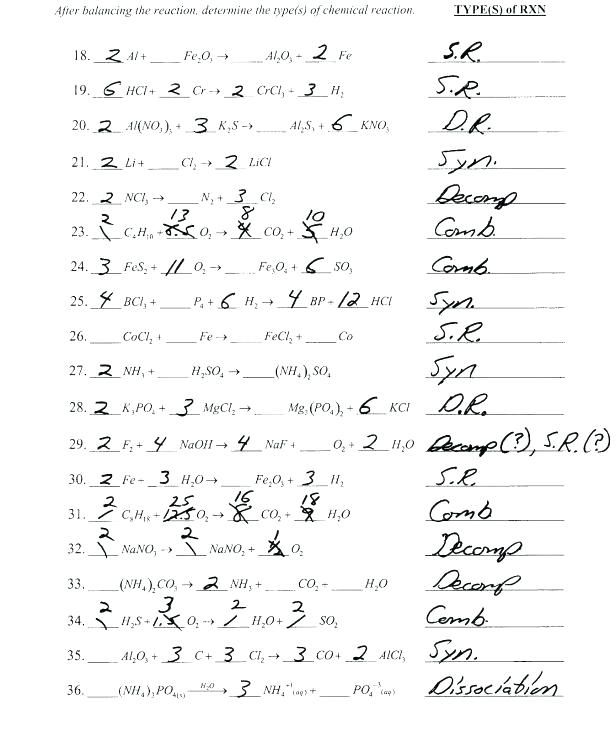 After balancing the reaction, determine the type(s) of chemical reaction. TYPE(S) of RXN
18. 2 Al + ____ Fe₂O₃ → ____ Al₂O₃ + 2 Fe S.R.
19. 6 HCl + 2 Cr → 2 CrCl₃ + 3 H₂ S.R.
20. 2 Al(NO₃)₃ + 3 K₂S → ____ Al₂S₃ + 6 KNO₃ D.R.
21. 2 Li + ____ Cl₂ → 2 LiCl Syn.
22. 2 NCl₃ → ____ N₂ + 3 Cl₂ Decomp
23. 2 C₄H₁₀ + 13 O₂ → 8 CO₂ + 10 H₂O Comb.
24. 3 FeS₂ + 11 O₂ → ____ Fe₃O₄ + 6 SO₃ Comb.
25. 4 BCl₃ + ____ P₄ + 6 H₂ → 4 BP + 12 HCl Syn.
26. ____ CoCl₂ + ____ Fe → ____ FeCl₂ + ____ Co S.R.
27. 2 NH₃ + ____ H₂SO₄ → ____ (NH₄)₂SO₄ Syn
28. 2 K₃PO₄ + 3 MgCl₂ → ____ Mg₃(PO₄)₂ + 6 KCl D.R.
29. 2 F₂ + 4 NaOH → 4 NaF + ____ O₂ + 2 H₂O Decomp(?), S.R.(?)
30. 2 Fe + 3 H₂O → ____ Fe₂O₃ + 3 H₂ S.R.
31. 2 C₈H₁₈ + 25 O₂ → 16 CO₂ + 18 H₂O Comb
32. 2 NaNO₃ → 2 NaNO₂ + 1 O₂ Decomp
33. ____ (NH₄)₂CO₃ → 2 NH₃ + ____ CO₂ + ____ H₂O Decomp
34. 2 H₂S + 3 O₂ → 2 H₂O + 2 SO₂ Comb.
35. ____ Al₂O₃ + 3 C + 3 Cl₂ → 3 CO + 2 AlCl₃ Syn.
36. ____ (NH₄)₃PO₄₍ₛ₎ H₂O → 3 NH₄⁺¹ (aq) + ____ PO₄⁻³ (aq) Dissociation